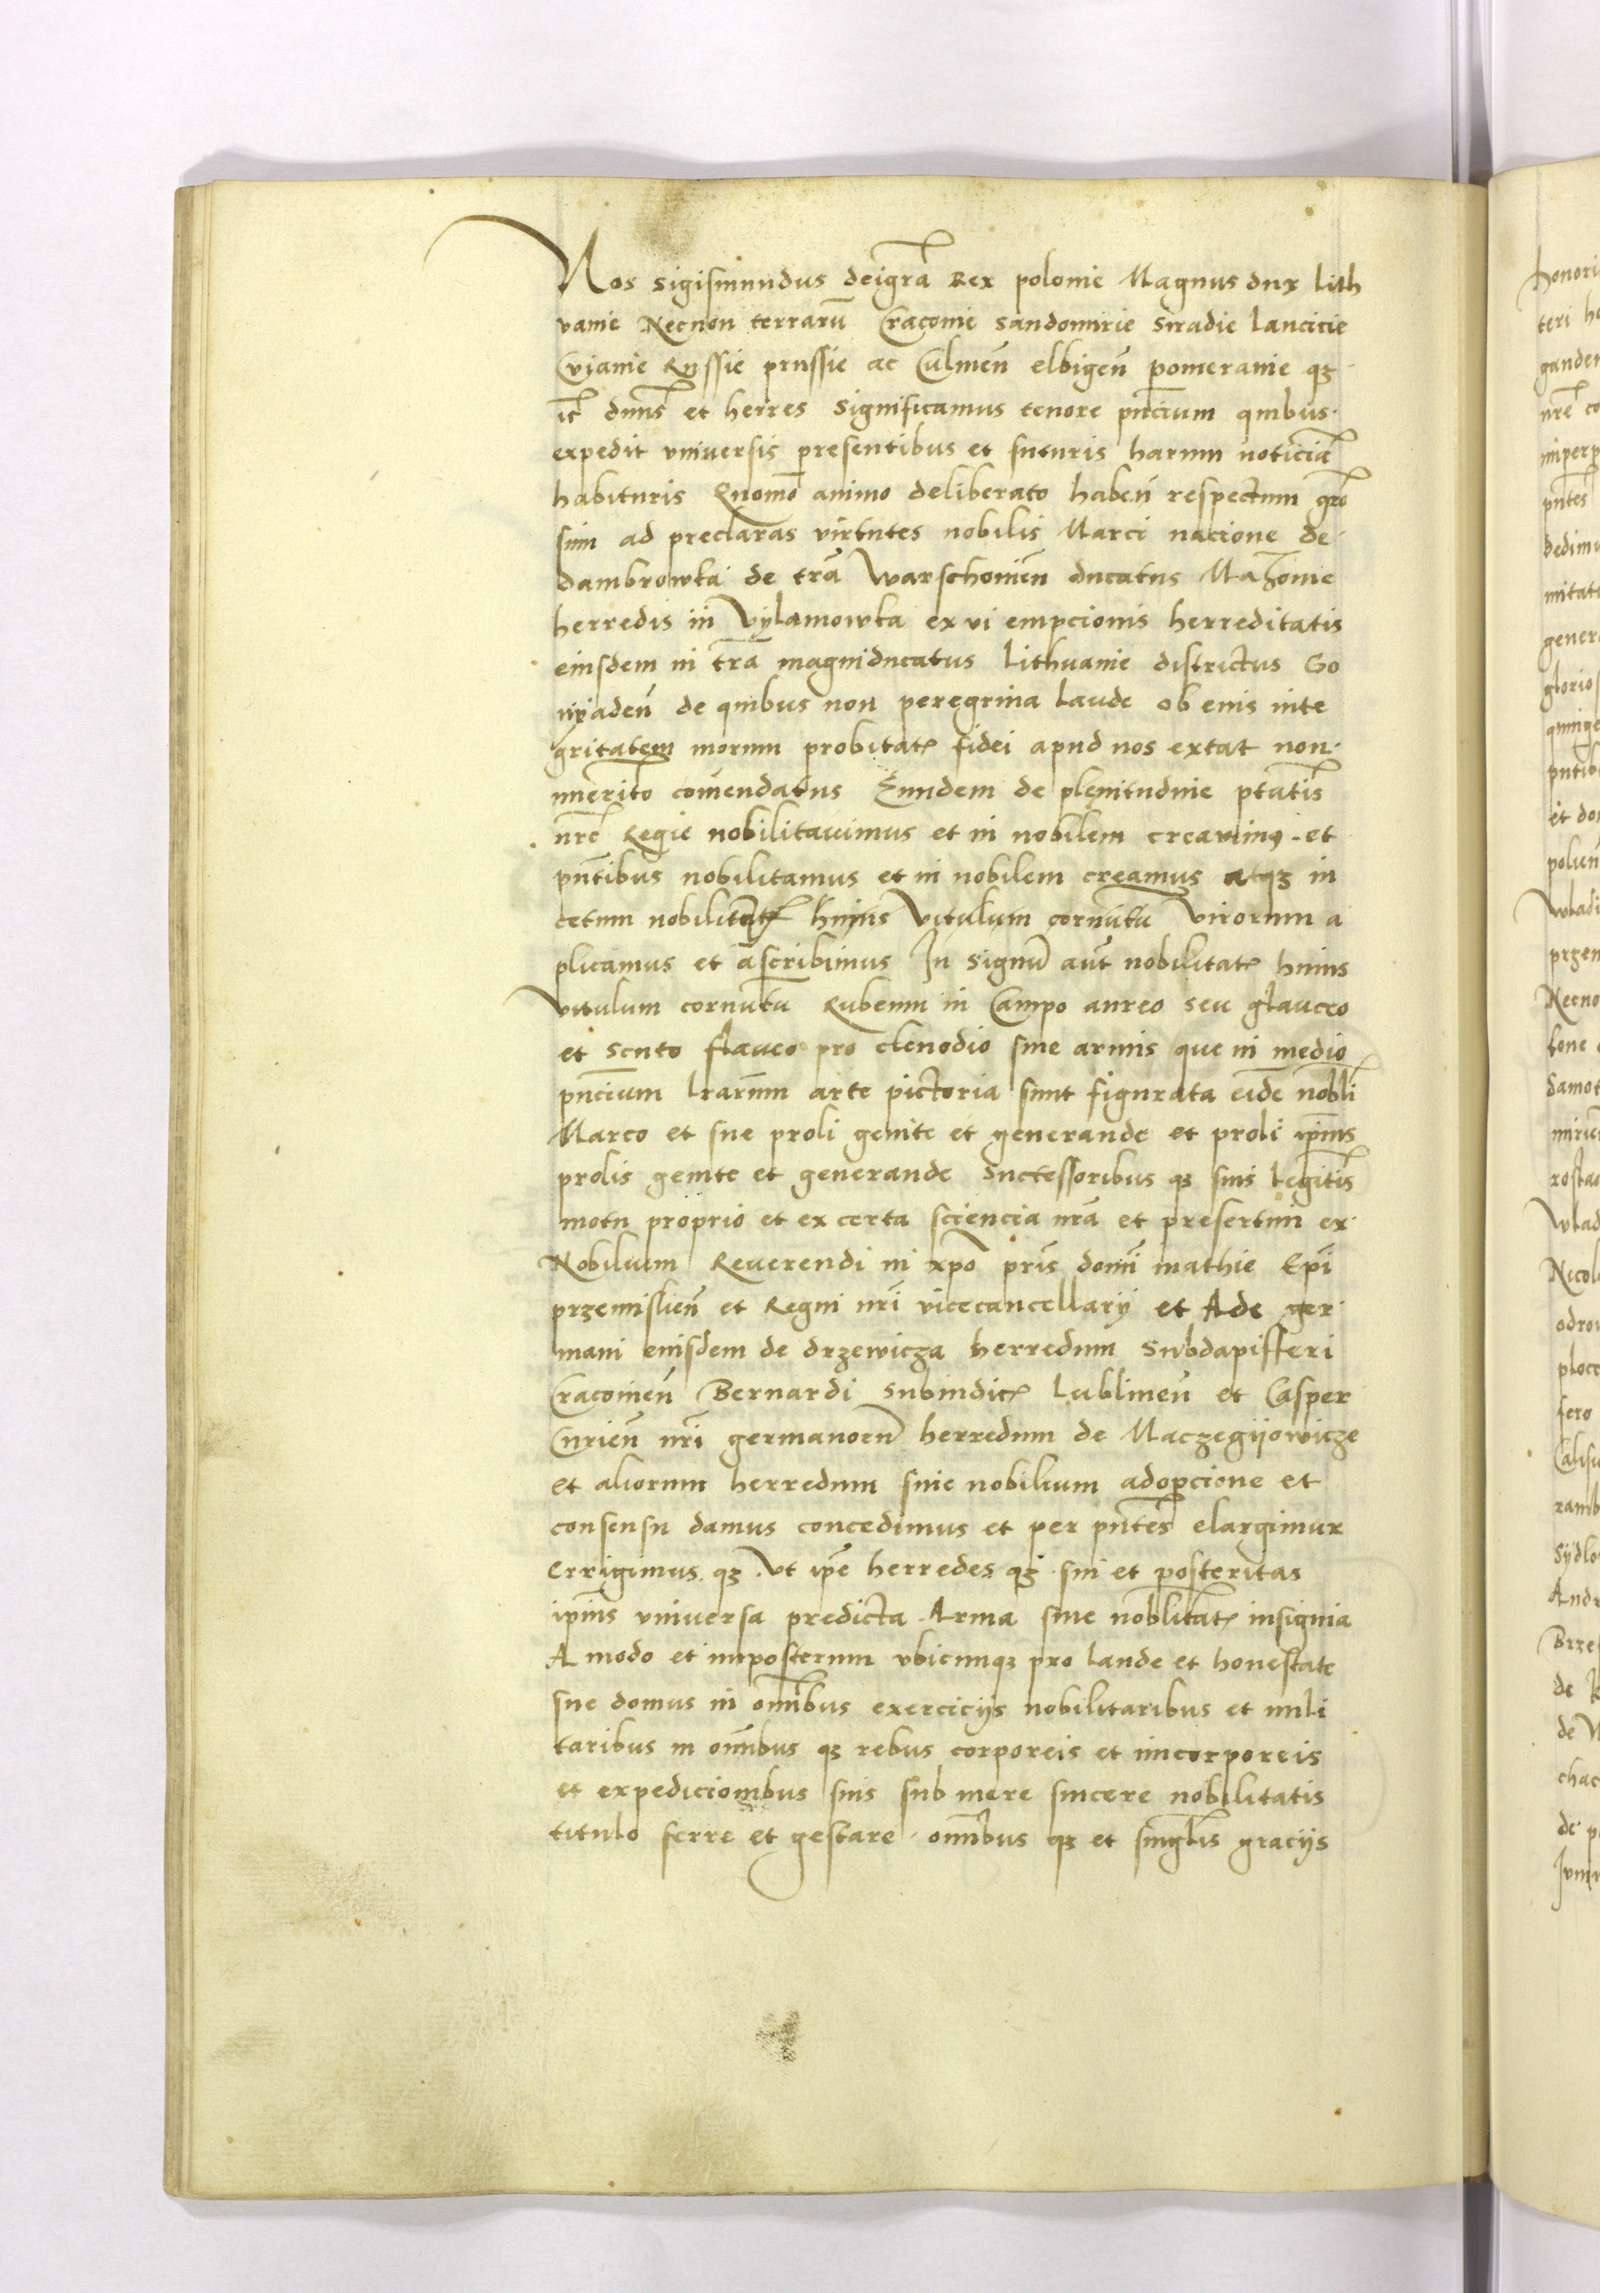 Nos Sigismundus deigrã Rex polonie Magnus dux Lith
vanie Necnon terrarũ Cracovie Sandomirie Siradie Lancicie
Cvianie Russie prussie ac Culmeñ elbigeñ pomeranie qʒ
ic̃ dnns̃ et herres Significamus tenore pñcium quibus.
expedit vniversis presentibus et futuris harum noticiã
habituris Quomõ animo deliberato habeñ respectum
sim ad preclaras virtutes nobilis Marci nacione de.
dambrowka de trã Warschovieñ ducatus Mazovie
herredis in Vylamowka ex vi empcionis herreditatis
eiusdem in trã magniducatus Lithuanie districtus Go
nyadeñ de quibus non peregrina laude ob eius inte
gritatem morum probitatꝭ fidei apud nos extat non.
inmerito com̃endatus Eundem de plenitudine ptatis̃
nrẽ Regie nobilitavimus et in nobilem creavimꝰ. et
pñtibus nobilitamus et in nobilem creamus atqʒ in
cetum nobilitatꝭ huius Vitulum cornutũ virorum a
plicamus et ascribimus In Signũ aut̃ nobilitatꝭ huius
vitulum cornutũ Rubeum in Campo aureo seu glauceo
et scuto flaveo pro clenodio sive armis que in medio
pñcium lrarum̃ arte pictoria sunt figurata eidẽ nobli
Marco et sue proli genite et generande et proli ipĩus
prolis genite et generande Successoribus qʒ suis legitis̃
motu proprio et ex certa sciencia nrã et presertim ex.
Nobilium Reverendi in xpõ pris̃ domĩ mathie Epĩ
przemislieñ et Regni nrĩ vicecancellarij et Ade ger
mani eiusdem de drzewicza herredum Subdapifferi
Cracovieñ Bernardi Subiudicꝭ Lublineñ et Casper
Curieñ nrĩ germanorũ herredum de Maczegijowicze
et aliorum herredum sive nobilium adopcione et
consensu damus concedimus et per pñtes elargimur
errigimus qʒ. Vt ipẽ herredes qʒ. sui et posteritas
ipĩus vniversa predicta Arma sive noblitatꝭ insignia
A modo et imposterum vbicunqʒ pro laude et honestate
sue domus in om̃ibus exercicijs nobilitaribus et mili
taribus in om̃ibus qʒ rebus corporeis et incorporeis
et expedicionibus suis sub mere sincere nobilitatis
titulo ferre et gestare. om̃ibus qʒ et singlis̃ gracijs